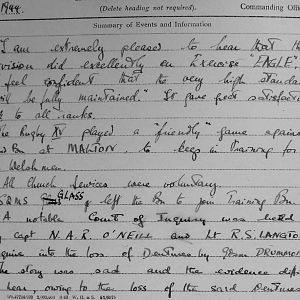 1944.
(Delete heading not required).
Commanding Offic
Summary of Events and Information
I am extremely pleased to hear that th
vision did excellently on Exercise "EAGLE"
feel confident that the very high standa
ill be fully maintained." It gave great satisfacti
to all ranks.
The Rugby XV played a "friendly" game agains
Bn at MALTON, to keep in training for
Welshmen.
All Church Services were voluntary.
SQMS GLASS left the Bn to join Training Bn.
A notable Court of Inquiry was held
capt N.A.R. O'NEILL and Lt R.S. LANGTO
quire into the loss of Dentures by Gdsm DRUMMON
he story was sad and the evidence diff
hear owing to the loss of the said Dentures